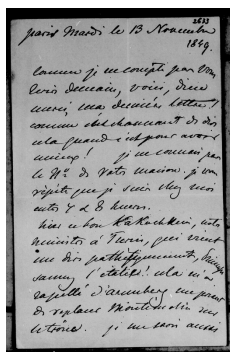 2633
Paris Mardi le 13 Novembre
1849.
Comme je ne compte pas vous
écrire demain, voici, dieu
merci, ma dernière lettre!
comme c'est charmant de dire
cela quand c'est pour avoir
mieux! je ne connais pas
le No. de votre maison. je vous
répète que je suis chez moi
entre 7 & 8 heures.
hier ce bon Kakochkine, notre
ministre à Turin, qui vient
me dire pathétiquement,
sauvez l'Italie! cela m'a
rappellé d'aremberg me priant
de replacer Montemolin sur
le trône. je me sens aussi